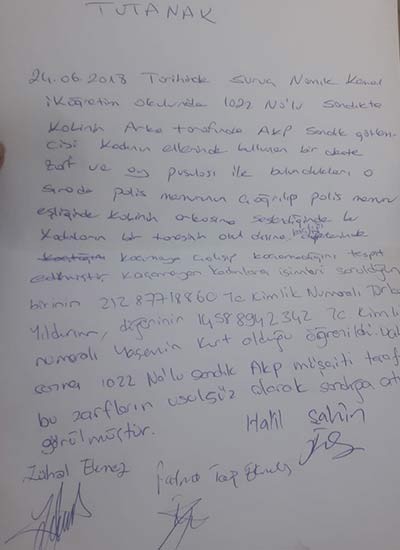 TUTANAK
24.06.2018 Tarihinde Suruç Namık Kemal
İlköğretim Okulunda 1022 No'lu sandıkta
Kabinin Arka tarafında AKP Sandık görev
cisi Kadının ellerinde bir adette
zarf ve oy pusulası ile bulundukları, o
sırada polis memurunun çağrılıp polis memuru
eşliğinde Kabinin arkasına seslendiğinde bu
Kadınların bir tanesinin okul dışına
kaçmaya çalışıp kaçamadığını tespit
edilmiştir. Kaçamayan Kadınlara isimleri sorulduğun
birinin 21287718860 Tc Kimlik Numaralı
Yıldırım, diğerinin 14588942342 Tc Kimli
numaralı Yasemin Kurt olduğu öğrenildi.
1022 No'lu sandık Akp müşaiti taraf
bu zarfların usulsüz olarak sandığa atı
görülmüştür.
Halil Şahin
Zühal Ekmez